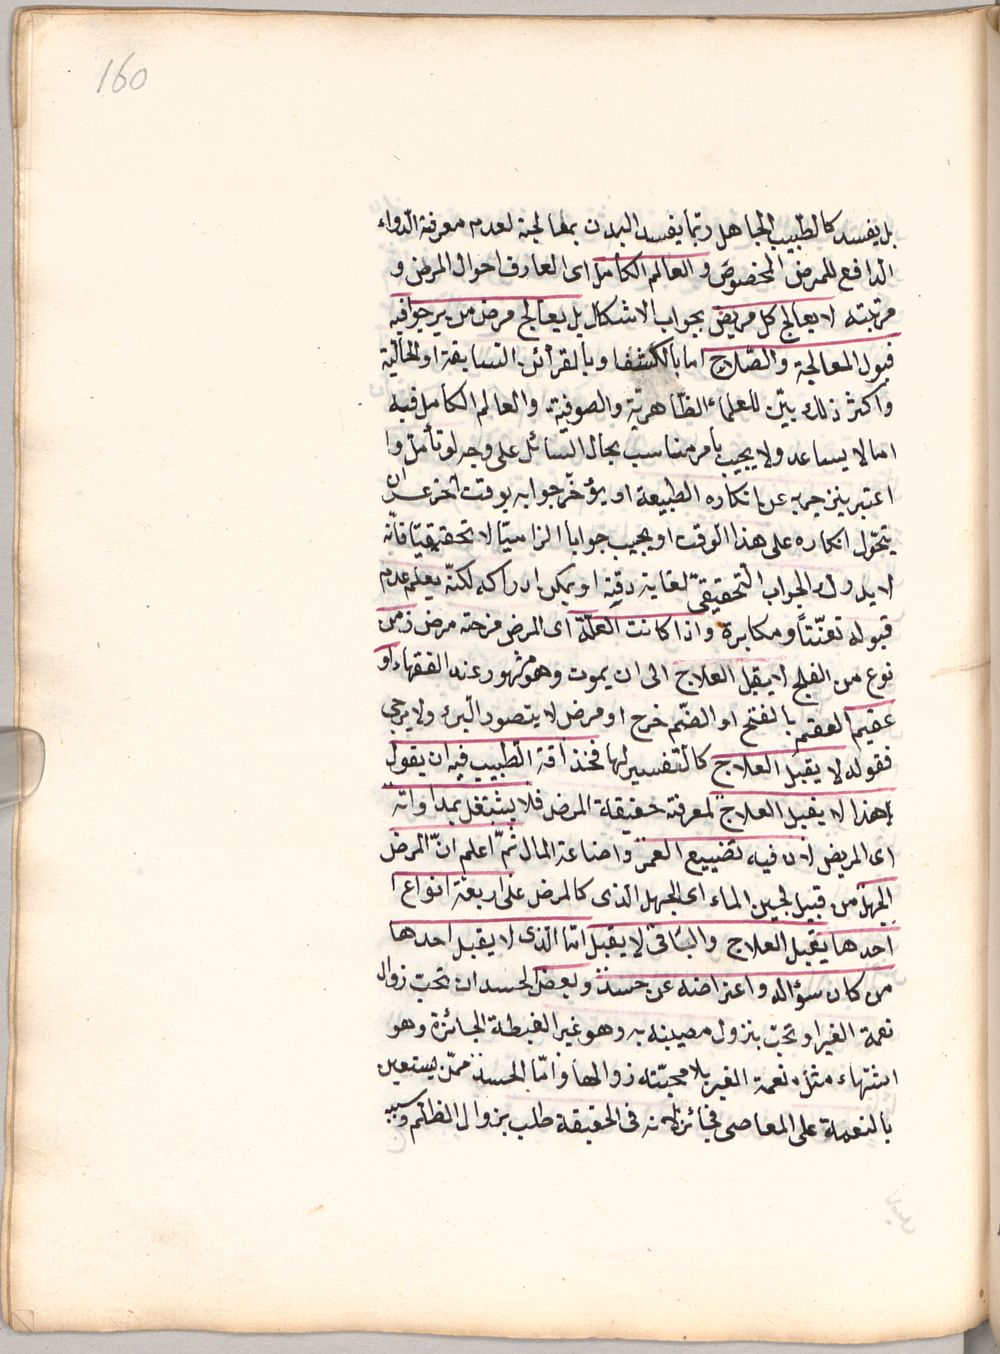 160
بل يفسد كالطبيب الجاهل ربّما يفسد البدن بمعالجته لعدم معرفة الدّواء
الدافع للمرض المخصوص و العالم الكامل اى العارف احوال المرض و
مرتبته لا يعالج كل مريض بجواب الاشكال بل يعالج مرض من يرجو فيه
قبول المعالجة والصّلاح اما بالكشف او بالقرائن السابقة او الحاليّة
واكثر ذلك بيّن للعلماء الظّاهريّة والصوفيّة والعالم الكامل فيه
اما لا يساعد ولا يجيب بامر مناسب بحال السائل على وجه لو تأمل وا
اعتبر ينزجر به عن انكاره الطبيعة او يؤخّر جوابه بوقت آخر عسى ان
يتحوّل انكاره على هذا الوقت او يجيب جوابا الزاميّا لا تحقيقيّا فانّه
لا يدرك الجواب التحقيقىّ لغاية دقّته او يمكن ادراكه لكنّه يعلم عدم
قبوله تعنّتاً ومكابرة واذا كانت العلّة اى المرض مزحته مرض زمن
نوع من الفلج لا يقبل العلاج الى ان يموت وهو مشهور عند الفقهاء او
عقيم العقم بالفتح او الضّم خرج او مرض لا يتصور البرء ولا يرجى
فقوله لا يقبل العلاج كالتفسير لها فحذاقة الطّبيب فيه ان يقول
هذا لا يقبل العلاج لمعرفته حقيقة المرض فلا يشتغل بمداواته
اى المريض لان فيه تضييع العمر واضاعة المال ثمّ اعلم انّ المرض
الجهل من قبيل لجين الماء اى الجهل الذى كالمرض على اربعة انواع ا
احدها يقبل العلاج والباقى لا يقبل امّا الّذى لا يقبل احدها
من كان سؤاله واعتراضه عن حسد وبعض الحسد ان تحبّ زوال
نعمة الغير او تحبّ بنزول مصيبة به وهو غير الغبطة الجائزة وهو
اشتهاء مثل نعمة الغير بلا محبّته زوالها وامّا الحسد ممّن يستعين
بالنعمة على المعاصى فجائز لانه فى الحقيقة طلب بزوال الظلم وسببه